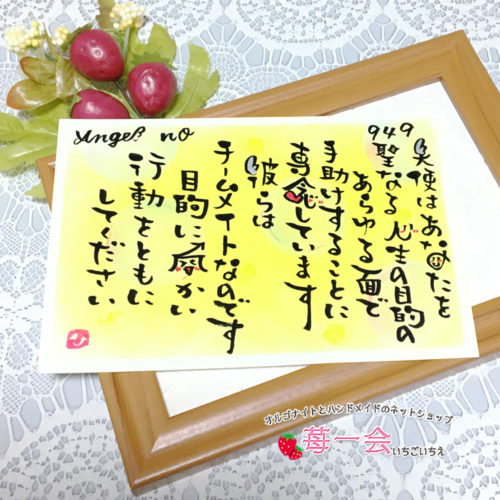 Angel no
949
天使はあなたを
聖なる人生の目的の
あらゆる面で
手助けすることに
専念しています
彼らは
チームメイトなのです
目的に向かい
行動をともに
してください
オルゴナイトとハンドメイドのネットショップ
苺一会 いちごいちえ